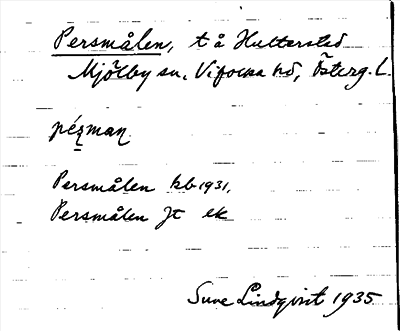 Persmålen, t å Hultersted
Mjölby sn, Vifolka hd, Österg. L.
péʐman
Persmålen kb 1931,
Persmålen Jt ek
Sune Lindqvist 1935